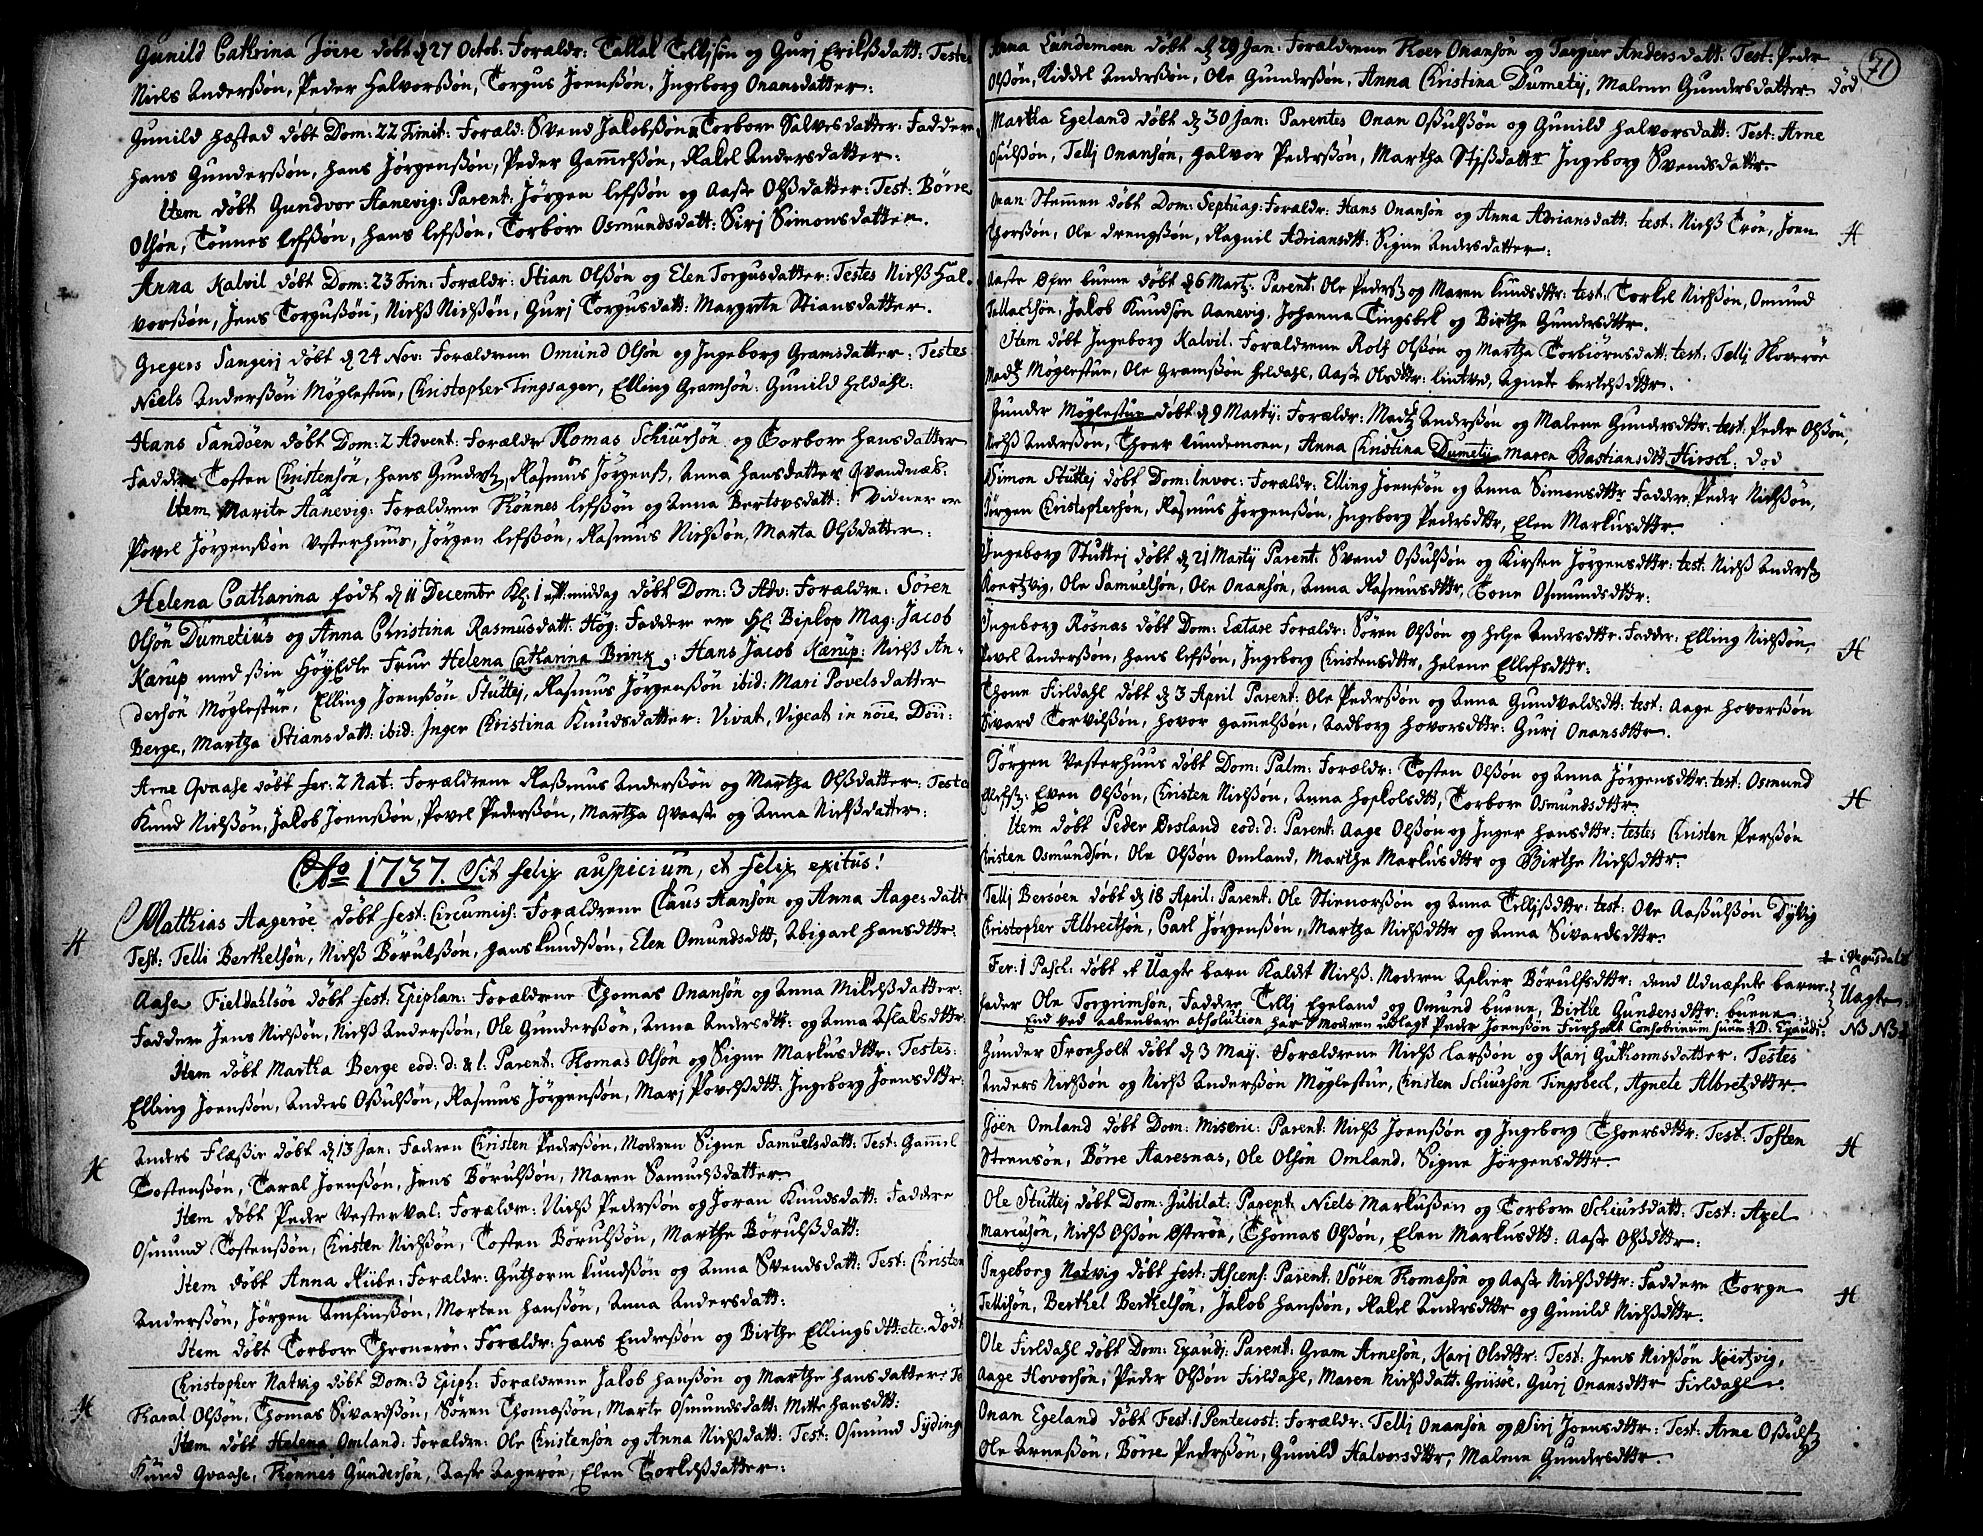 Gunild Cathrina Jöere döbt d 27 Octob: Forældr: Tallak Tellisön og Gurj Eriksdatt: Testes
Niels Anderssön, Peder Halvorssön, Torgus Joenssön, Ingeborg Onansdatter:
Gunild Hæstad döbt Dom: 22 Trinit: Foræld: Svend Jakobssön Torborn Salvesdatter: Faddere
Hans Gunderssön, Hans Jörgenssön, Peder Gamelssön, Rakel Andersdatter:
Item döbt Gundvor Aanevig: Parent: Jörgen Lefssön og Aase Olssdatter: Test: Börre
Olssön, Tönnes Lefssön, Hans Lefssön, Torbore Osmundsdatt: Sirj Simonsdatter.
Anna Kalvil döbt Dom: 23 Trin: Forældr: Stian Olssön og Elen Torgusdatter: Testes Nielss Hal-
vorssön, Jens Torgussön, Nielss Nielssön, Gurj Torgusdatt: Margrete Stiansdatter.
Gregers Sangerj döbt d 24 Nov: Forældrene Omund Olssön og Ingeborg Gramsdatter: Testes
Niels Anderssön Möglestue, Christopher Tingsager, Elling Gramsön: Gunild Heldahl:
Hans Sandöen döbt Dom: 2 Advent: Forældr Thomas Schiursön og Torbore Hansdatter
Faddere Tosten Christensön, Hans Gunderss, Rasmus Jörgenss, Anna Hansdatter Qvandnæs.
Item Marite Aanevig: Forældrene Tönnes Lefssön og Anna Bertevsdatt: Vidner er
Povel Jörgenssön Vesterhuus, Jörgen Lefssön, Rasmus Nielssön, Marta Olssdatter:
Helena Catharina födt d 11 Decembr Kl: 1 eftmiddag döbt Dom: 3 Adv: Forældre: Sören
Olssön Dumetius og Anna Christina Rasmusdatt: Hög: Faddere ere Hr Biskop Mag: Jacob
Kærup med sin HöyEdle Frue Helena Catharina Brinx: Hans Jacob Kærup: Nielss An-
dersön Möglestue, Elling Joenssön Stuttej, Rasmus Jörgenssön ibid: Mari Povelsdatter
Berge, Martha Stiansdatt: ibid: Inger Christina Knudsdatter: Vivat, Vigeat in nöie, Döii:
Arne Qvaase döbt Fer: 2 Nat: Forældrene Rassmus Anderssön og Martha Olssdatter: Teste
Knud Nielssön, Jakob Joenssön, Povel Pederssön, Martha Qvaase og Anna Nielssdatter:
Ao 1737. Sit felix auspicium, et felix exitus!
Matthias Aagerøe döbt Fest: Circumcis: Forældrene Claus Hansön og Anna Aagesdatt
H Test: Telli Berthelsön, Nielss Börulssön, Hans Knudssön, Elen Omundsdtt, Abigael Hansdttr:
Aase Fieldahlsöe döbt Fest: Epiphan: Forældrene Thomas Onansön og Anna Mikelssdatter:
Faddere Jens Nielssön, Nielss Anderssön, Ole Gunderssön, Anna Andersdtt: og Anna Aslaksdttr
Item döbt Martha Berge eod: d: & l: Parent: Thomas Olssön og Signe Markusdttr: Testes:
Elling Joenssön, Anders Ossulssön, Rasmus Jörgenssön, Marj Povelssdtt: Ingeborg Joensdttr:
Anders Flæssie döbt d 13 Jan: Faderen Christen Pederssön, Moderen Signe Samuelsdatt: Test: Gamel
H Tostenssön, Taral Joenssön, Jens Börulssön, Maren Samuelssdatter:
Item döbt Peder Vesterval: Forældre: Nielss Pederssön og Joran Knudsdatt: Faddere
Osmund Tostenssön, Christen Nielssön, Tosten Börulssön, Marthe Börulssdatt:
Item döbt Anna Riibe: Forældr: Guthorm Knudssön og Anna Svendsdatt: Test: Christen
Anderssön, Jörgen Anfinssön, Morten Hanssön, Anna Andersdatt:
Item döbt Torbore Throneröe: Forældr: Hans Endressön og Birthe Ellingsdtt: etc. Död
Christopher Natvig döbt Dom: 3 Epiph: Forældrene Jakob Hanssön og Marthe Hansdatter: Te
H Taral Olssön, Thomas Sivardssön, Sören Thomæssön, Marte Osmundsdatt: Mitte Hansdtt:
Item döbt Helena Omland: Forældre: Ole Christensön og Anna Nielssdatt: Test: Osmund Syding
Knud Qvaase, Tönnes Gundersön, Aase Aageröe, Elen Torkelssdatter:
71
Anna Lundemoen döbt d 29 Jan: Forældrene Thoer Onansön og Targier Andersdatt: Test: Peder
Olssön, Riddel Anderssön, Ole Gunderssön, Anna Christina Dumetij, Malene Gundersdatter. död
Martha Egeland döbt d 30 Jan: Parentes Onan Ossulssön og Gunild Halvorsdatt: Test: Arne
Osulssön, Tellj Onansön, Halvor Pederssön, Martha Stissdatter Ingeborg Svendsdatter.
Onan Stemmen döbt Dom: Septuag: Forældr: Hans Onansön og Anna Adriansdatt: test: Nielss Tröe, Joen
Thorssön, Ole Drengssön, Ragnil Adriansdtt: Signe Andersdatter: H
Aaste Öfre Buene döbt d 6 Martz: Parent: Ole Pederss og Maren Knudsdttr: test: Torkel Nielssön, Omund
Tellacksön, Jakob Knudssön Aanevig, Johanna Tingsbek og Birthe Gundersdttr.
Item döbt Ingeborg Kalvil. Forældrene Rolf Olssön og Martha Torbiörnsdatt: test: Tellj Skoveröe
Madtz Möglestue, Ole Gramssön Heldahl, Aase Olsdttr: Lintved, Agnete Bertelssdttr.
Gunder Möglestue döbt d 9 Martij: Forældr: Madtz Anderssön og Malene Gundersdttr: test: Peder Olssön,
Rolss Anderssön, Thoer Lundemoen, Anna Christina Dumetij Maren Bastiansdtt Hirsch: död
Simon Stuttej döbt Dom: Invoc: Forældr: Elling Joenssön og Anna Simonsdttr Faddere: Peder Nielssön,
Jörgen Christophersön, Rasmus Jörgenssön, Ingeborg Pedersdttr, Elen Markusdttr.
Ingeborg Stuttej döbt d 21 Martij Parent: Svend Ossulssön og Kirsten Jörgensdttr: test: Nielss Anderss
Koertzvig, Ole Samuelsön, Ole Onansön, Anna Rasmusdttr, Tone Osmundsdttr:
Ingeborg Rösnas döbt Dom: Lætare Forældr: Sören Olssön og Helje Andersdttr: Fadder: Elling Nielssön,
Povel Anderssön, Hans Lefssön, Ingeborg Christensdttr, Helene Ellefsdttr: H
Thone Fieldahl döbt d 3 April Parent: Ole Pederssön og Anna Gundvaldsdtt: test: Aage Hovorssön
Sivard Torvilssön, Hovor Gamelssön, Aadborg Hovorsdttr: Gurj Onansdttr.
Jörgen Vesterhuus döbt Dom: Palm: Forældr: Tosten Olssön og Anna Jörgensdttr: test: Osmund
Olefss: Even Olssön, Christen Nielssön, Anna Hoskolsdtt, Torbore Osmundsdttr H
Item döbt Peder Dræsland eod: d: Parent: Aage Olssön og Inger Hansdttr: testes Christen Perssön
Christen Osmundssön, Ole Olssön Omland, Marthe Markusdttr og Birthe Nielssdttr:
Tellj Bersöen döbt d 18 April: Parent: Ole Stienorssön og Anna Tellissdttr: test: Ole Aassulssön Dybvig
Christopher Albrectsön, Carl Jörgenssön, Martha Nielssdttr og Anna Sivardsdttr.
Fer: 1 Pasch: döbt et Uagte barn Kaldet Nielss: Moderen Asbier Börulfsdttr: dend Udnæfnte barne-
fader Ole Torgrimsön, Faddere Tellj Egeland og Omund Buene, Birthe Gundersdttr: Buene
i Vegusdal
Uagte
End ved aabenbare absolution har Moderen udlagt Peder Joenssön Furholt Consobrinum suum: D. Exaudi: NB NB
Gunder Froeholt döbt d 3 Maij: Forældrene Nielss Larssön og Karj Guthormsdatter: Testes
Anders Nielssön og Nielss Anderssön Möglestue, Christen Schiursön Tingsbeck, Agnete Albretzdttr
Jöen Omland döbt Dom: Miseric: Parent: Nielss Joenssön og Ingeborg Thoersdttr: Test: Tosten
Steensön, Börre Aaresnas, Ole Olssön Omland, Signe Jörgensdttr. H
Ole Stuttej döbt Dom: Jubilat: Parent: Niels Markussen og Torbore Schiursdatt: Test: Axel
Marcusön, Nielss Olssön Österöe, Thomas Olssön, Elen Markusdtt: Aase Olssdttr:
Ingeborg Natvig döbt Fest: Ascens: Parent: Sören Thomæsön og Aase Nielssdttr: Faddere Torge
Tellisön, Berthel Berthelsön, Jakob Hanssön, Rakel Andersdttr og Gunild Nielssdttr. H
Ole Fieldahl döbt Dom: Exaudj: Parent: Gram Arnesön, Karj Olsdttr: Test: Jens Nielssön Koertzvig,
Aage Hovorsön, Peder Olssön Fieldahl, Maren Nielssdatt: Griisöe, Gurj Onansdttr Fieldahl.
Onan Egeland döbt Fest: 1 Pentecost: Forældr: Tellj Onansön og Sirj Joensdttr: Test: Arne Ossulss
Ole Arnessön, Börre Pederssön, Gunild Halvorsdttr, Malene Gundersdttr.